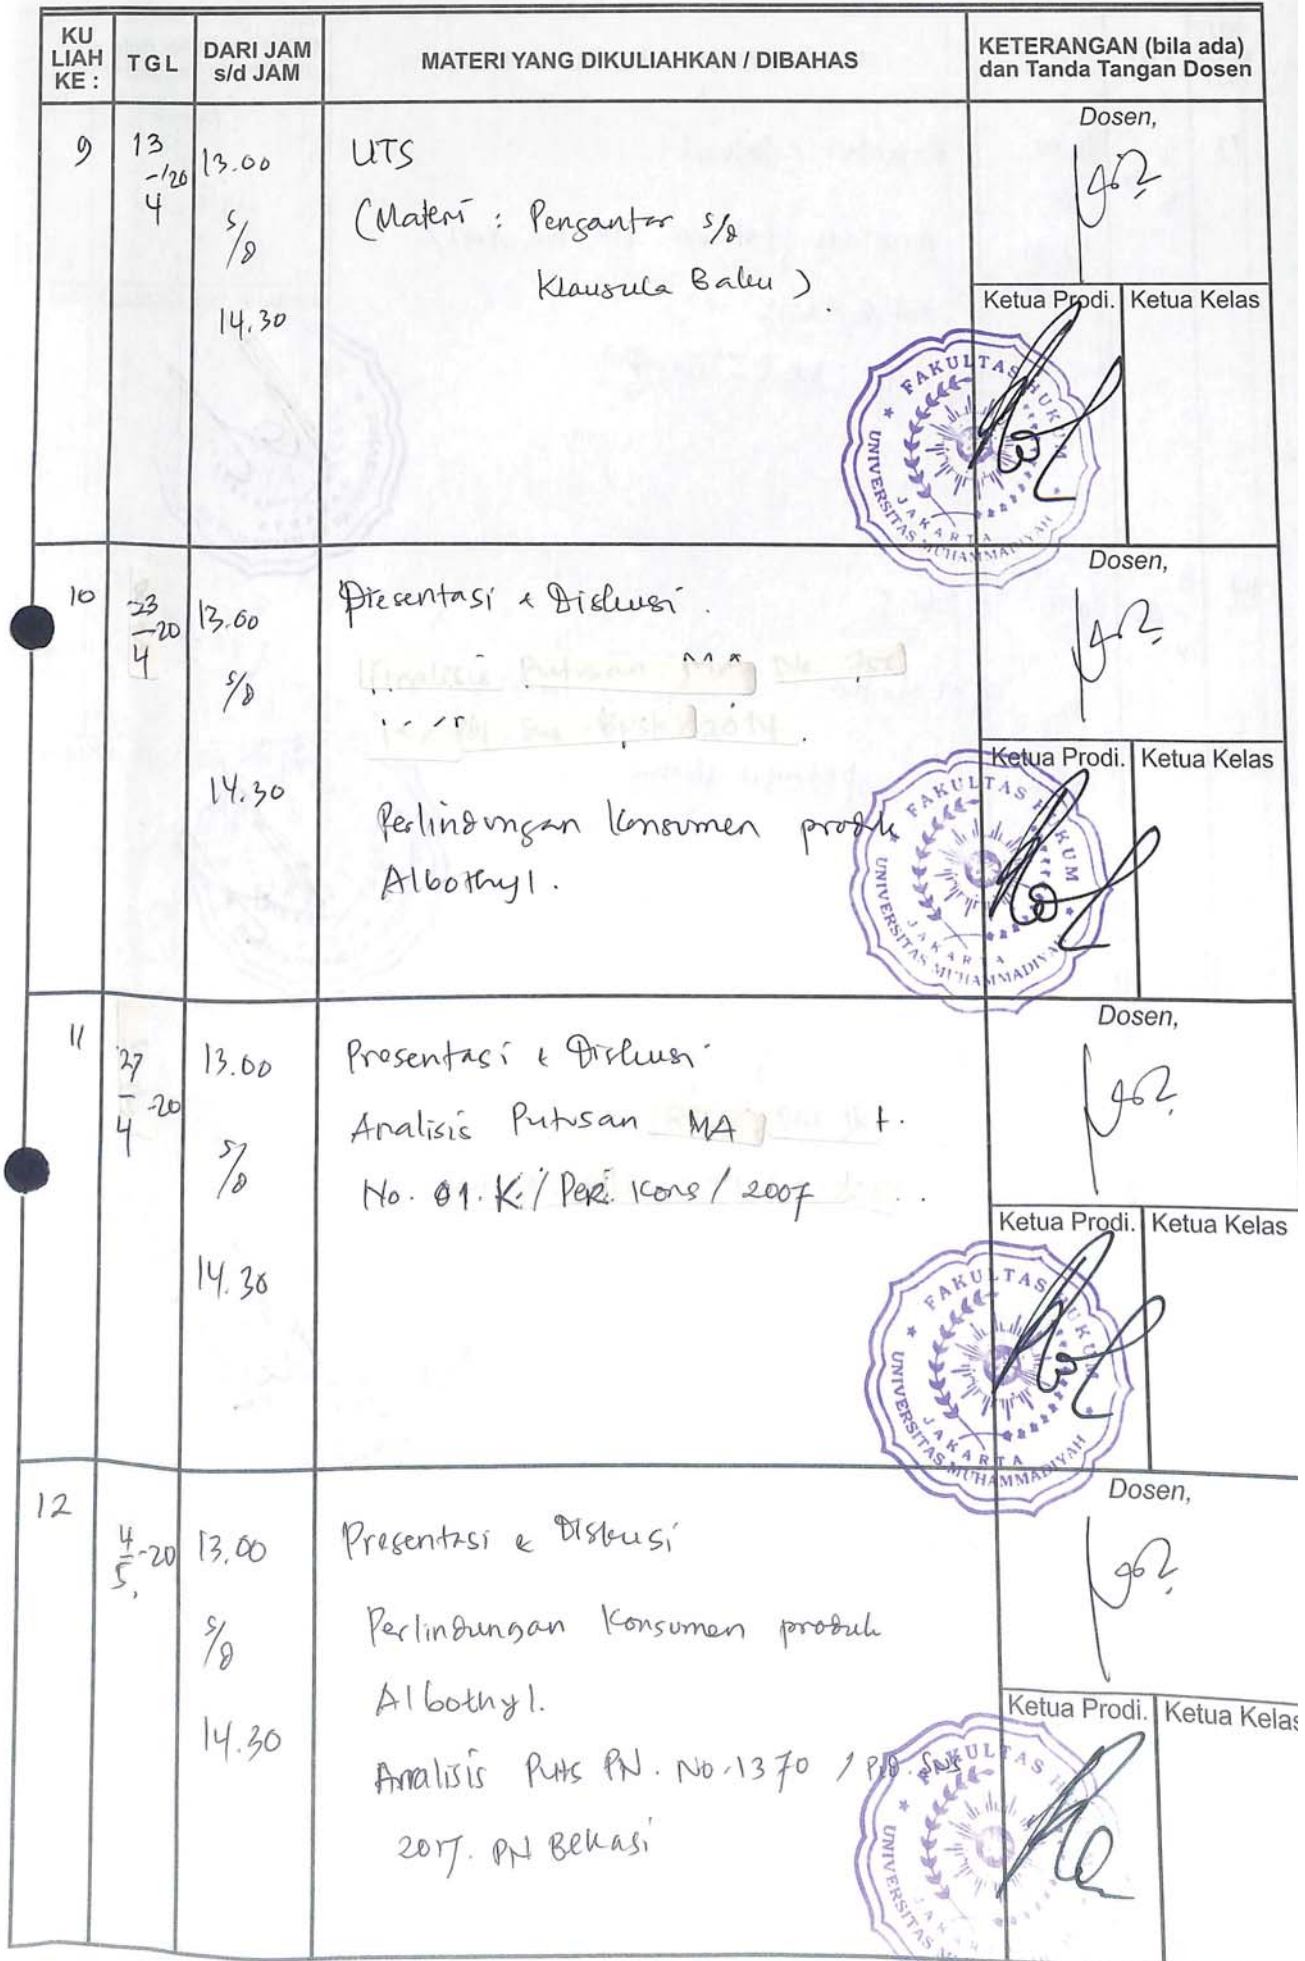 KU LIAH KE :
TGL
DARI JAM s/d JAM
MATERI YANG DIKULIAHKAN / DIBAHAS
KETERANGAN (bila ada) dan Tanda Tangan Dosen
9
13/4 -20
13.00 s/d 14.30
UTS
(Materi : Pengantar s/d
Klausula Baku)
Dosen,
Ketua Prodi.
Ketua Kelas
FAKULTAS HUKUM
UNIVERSITAS MUHAMMADIYAH
JAKARTA
10
23/4 -20
13.00 s/d 14.30
Presentasi & Diskusi.
Perlindungan Konsumen produk
Albothyl.
Dosen,
Ketua Prodi.
Ketua Kelas
FAKULTAS HUKUM
UNIVERSITAS MUHAMMADIYAH
JAKARTA
11
27/4 -20
13.00 s/d 14.30
Presentasi & Diskusi
Analisis Putusan MA
No. 01. K. / Per. Kons / 2007
Dosen,
Ketua Prodi.
Ketua Kelas
FAKULTAS HUKUM
UNIVERSITAS MUHAMMADIYAH
JAKARTA
12
4/5 -20
13.00 s/d 14.30
Presentasi & Diskusi
Perlindungan Konsumen produk
Albothyl.
Analisis Puts PN. No. 1370 / Pid. Sus
2017. PN Bekasi
Dosen,
Ketua Prodi.
Ketua Kelas
FAKULTAS